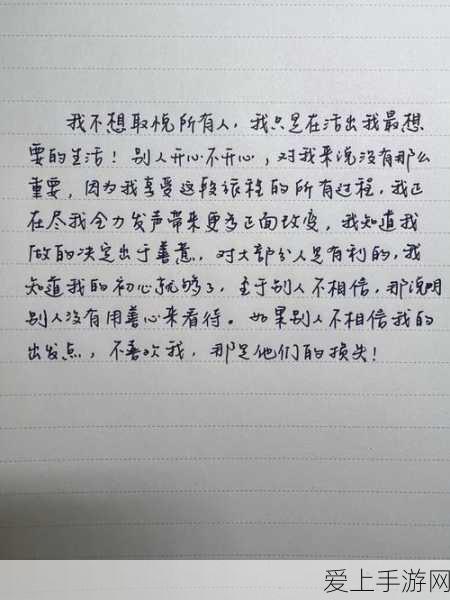 我不想取悦所有人，我只是在活出我最想
要的生活！别人开心不开心，对我来说没有那么
重要，因为我享受这段旅程的所有过程，我正
在尽我全力发声带来更多正面改变，我知道我
做的决定出于善意，对大部分人是有利的，我
知道我的初心就够了，至于别人不相信，那说明
别人没有用善心来看待。如果别人不相信我的
出发点，不喜欢我，那是他们的损失！
爱上手游网